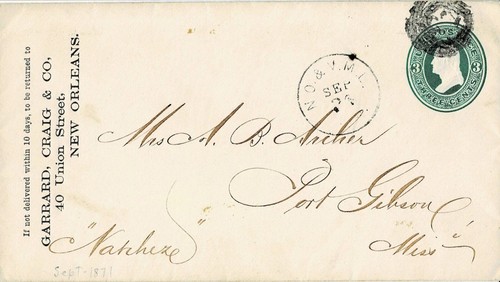 If not delivered within 10 days, to be returned to
GARRARD, CRAIG & CO,
40 Union Street,
NEW ORLEANS.
N.O. & V. M. L.
SEP
THREE CENTS
Mrs A. B. Archer
Port Gibson
"Natchez"
Miss
Sept-1871